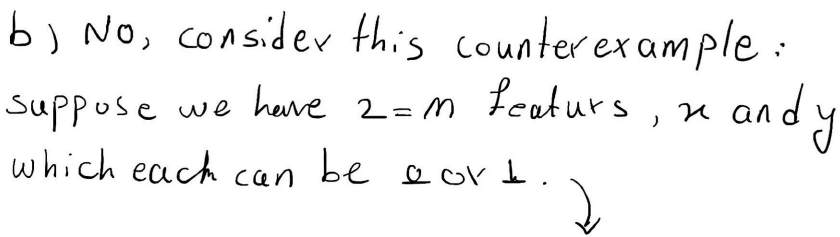 b) No, consider this counterexample:
suppose we have 2=m featurs, x and y
which each can be 0 or 1.